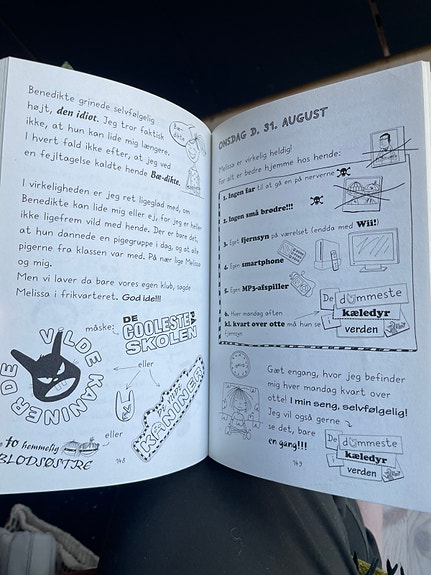 Benedikte grinede selvfølgelig
højt, den idiot. Jeg tror faktisk
ikke, at hun kan lide mig længere.
I hvert fald ikke efter, at jeg ved
en fejltagelse kaldte hende Bæ-dikte.
Bæ-
dikte
I virkeligheden er jeg ret ligeglad med, om
Benedikte kan lide mig eller ej, for jeg er heller
ikke ligefrem vild med hende. Der er bare det,
at hun dannede en pigegruppe i dag, og at alle
pigerne fra klassen var med. På nær lige Melissa
og mig.
Men vi laver da bare vores egen klub, sagde
Melissa i frikvarteret. God ide!!!
DE VILDE KANINER
måske:
DE
COOLESTE
SKOLEN
eller
KANINER
to hemmelig
BLODSØSTRE
eller
148
ONSDAG D. 31. AUGUST
Melissa er virkelig heldig!
For alt er bedre hjemme hos hende:
1. Ingen far til at gå en på nerverne
2. Ingen små brødre!!!
3. Eget fjernsyn på værelset (endda med Wii!)
4. Egen smartphone
5. Egen MP3-afspiller
6. Hver mandag aften
kl. kvart over otte må hun se
fjernsyn
De dummeste
kæledyr
verden
Gæt engang, hvor jeg befinder
mig hver mandag kvart over
otte! I min seng, selvfølgelig!
Jeg vil også gerne
se det, bare
en gang!!!
De dummeste
kæledyr
verden
149